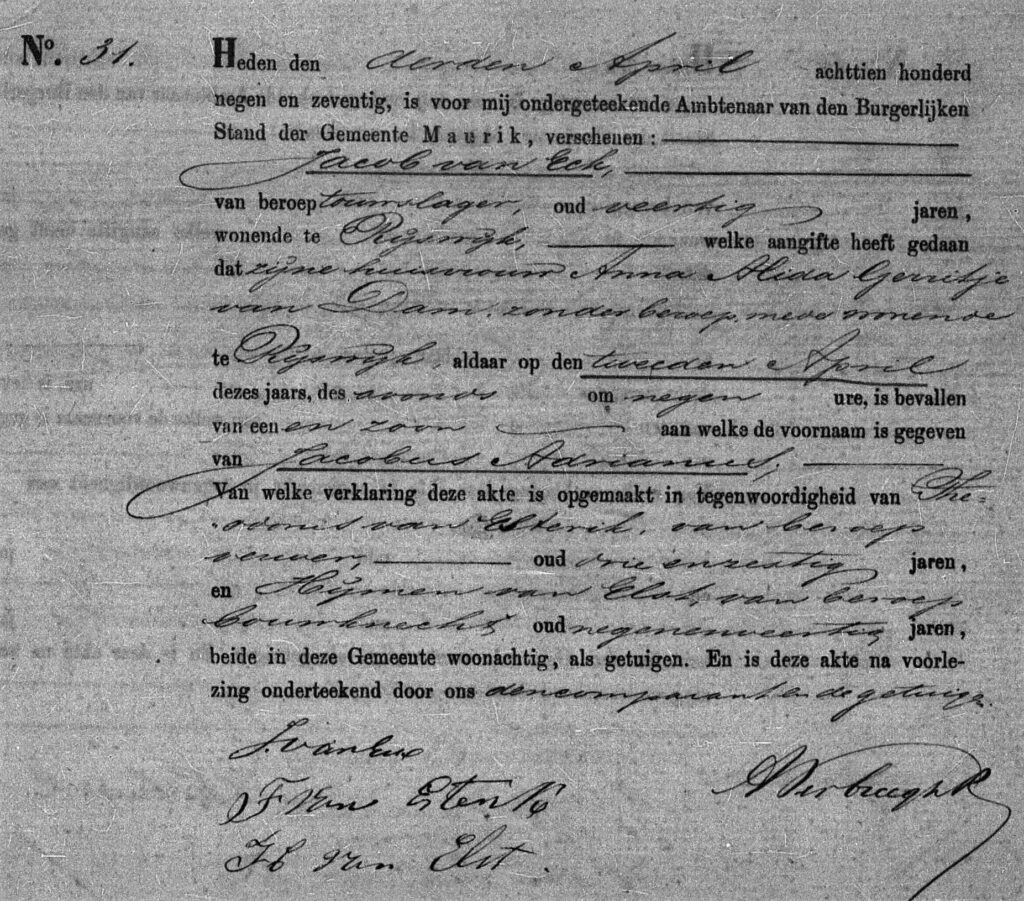 No. 31. Heden den derden April achttien honderd
negen en zeventig, is voor mij ondergeteekende Ambtenaar van den Burgerlijken
Stand der Gemeente Maurik, verschenen:
Jacob van Eck,
van beroep touwslager, oud veertig jaren,
wonende te Rijswijk, welke aangifte heeft gedaan
dat zijne huisvrouw Anna Alida Gerritje
van Dam, zonder beroep, mede wonende
te Rijswijk, aldaar op den tweeden April
dezes jaars, des avonds om negen ure, is bevallen
van een en zoon aan welke de voornaam is gegeven
van Jacobus Adrianus,
Van welke verklaring deze akte is opgemaakt in tegenwoordigheid van
van Esterik, van beroep
oud drie en zestig jaren,
en Hijmen van Elst, van beroep
bouwknecht, oud negenenveertig jaren,
beide in deze Gemeente woonachtig, als getuigen. En is deze akte na voorle-
zing onderteekend door ons den comparant en de getuigen.
J. van Eck
F van Esterik
H van Elst.